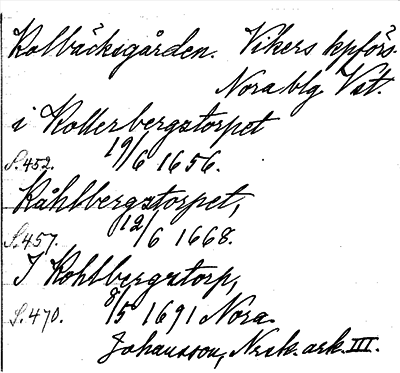 Kolbäcksgården. Vikers kpförs.
Nora blg Vst.
i Kollerbergstorpet
S. 452. 19/6 1656.
Kåhlbergstorpet,
S. 457. 12/6 1668.
I Kohlbergstorp,
S. 470. 8/5 1691 Nora.
Johansson, Nrsk. ark. III.